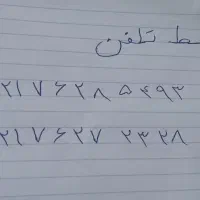 ط تلفن
۲۱۷۶۲۸ ۵۴۹۳
۲۱۷۶۲۷ ۲۳۲۸